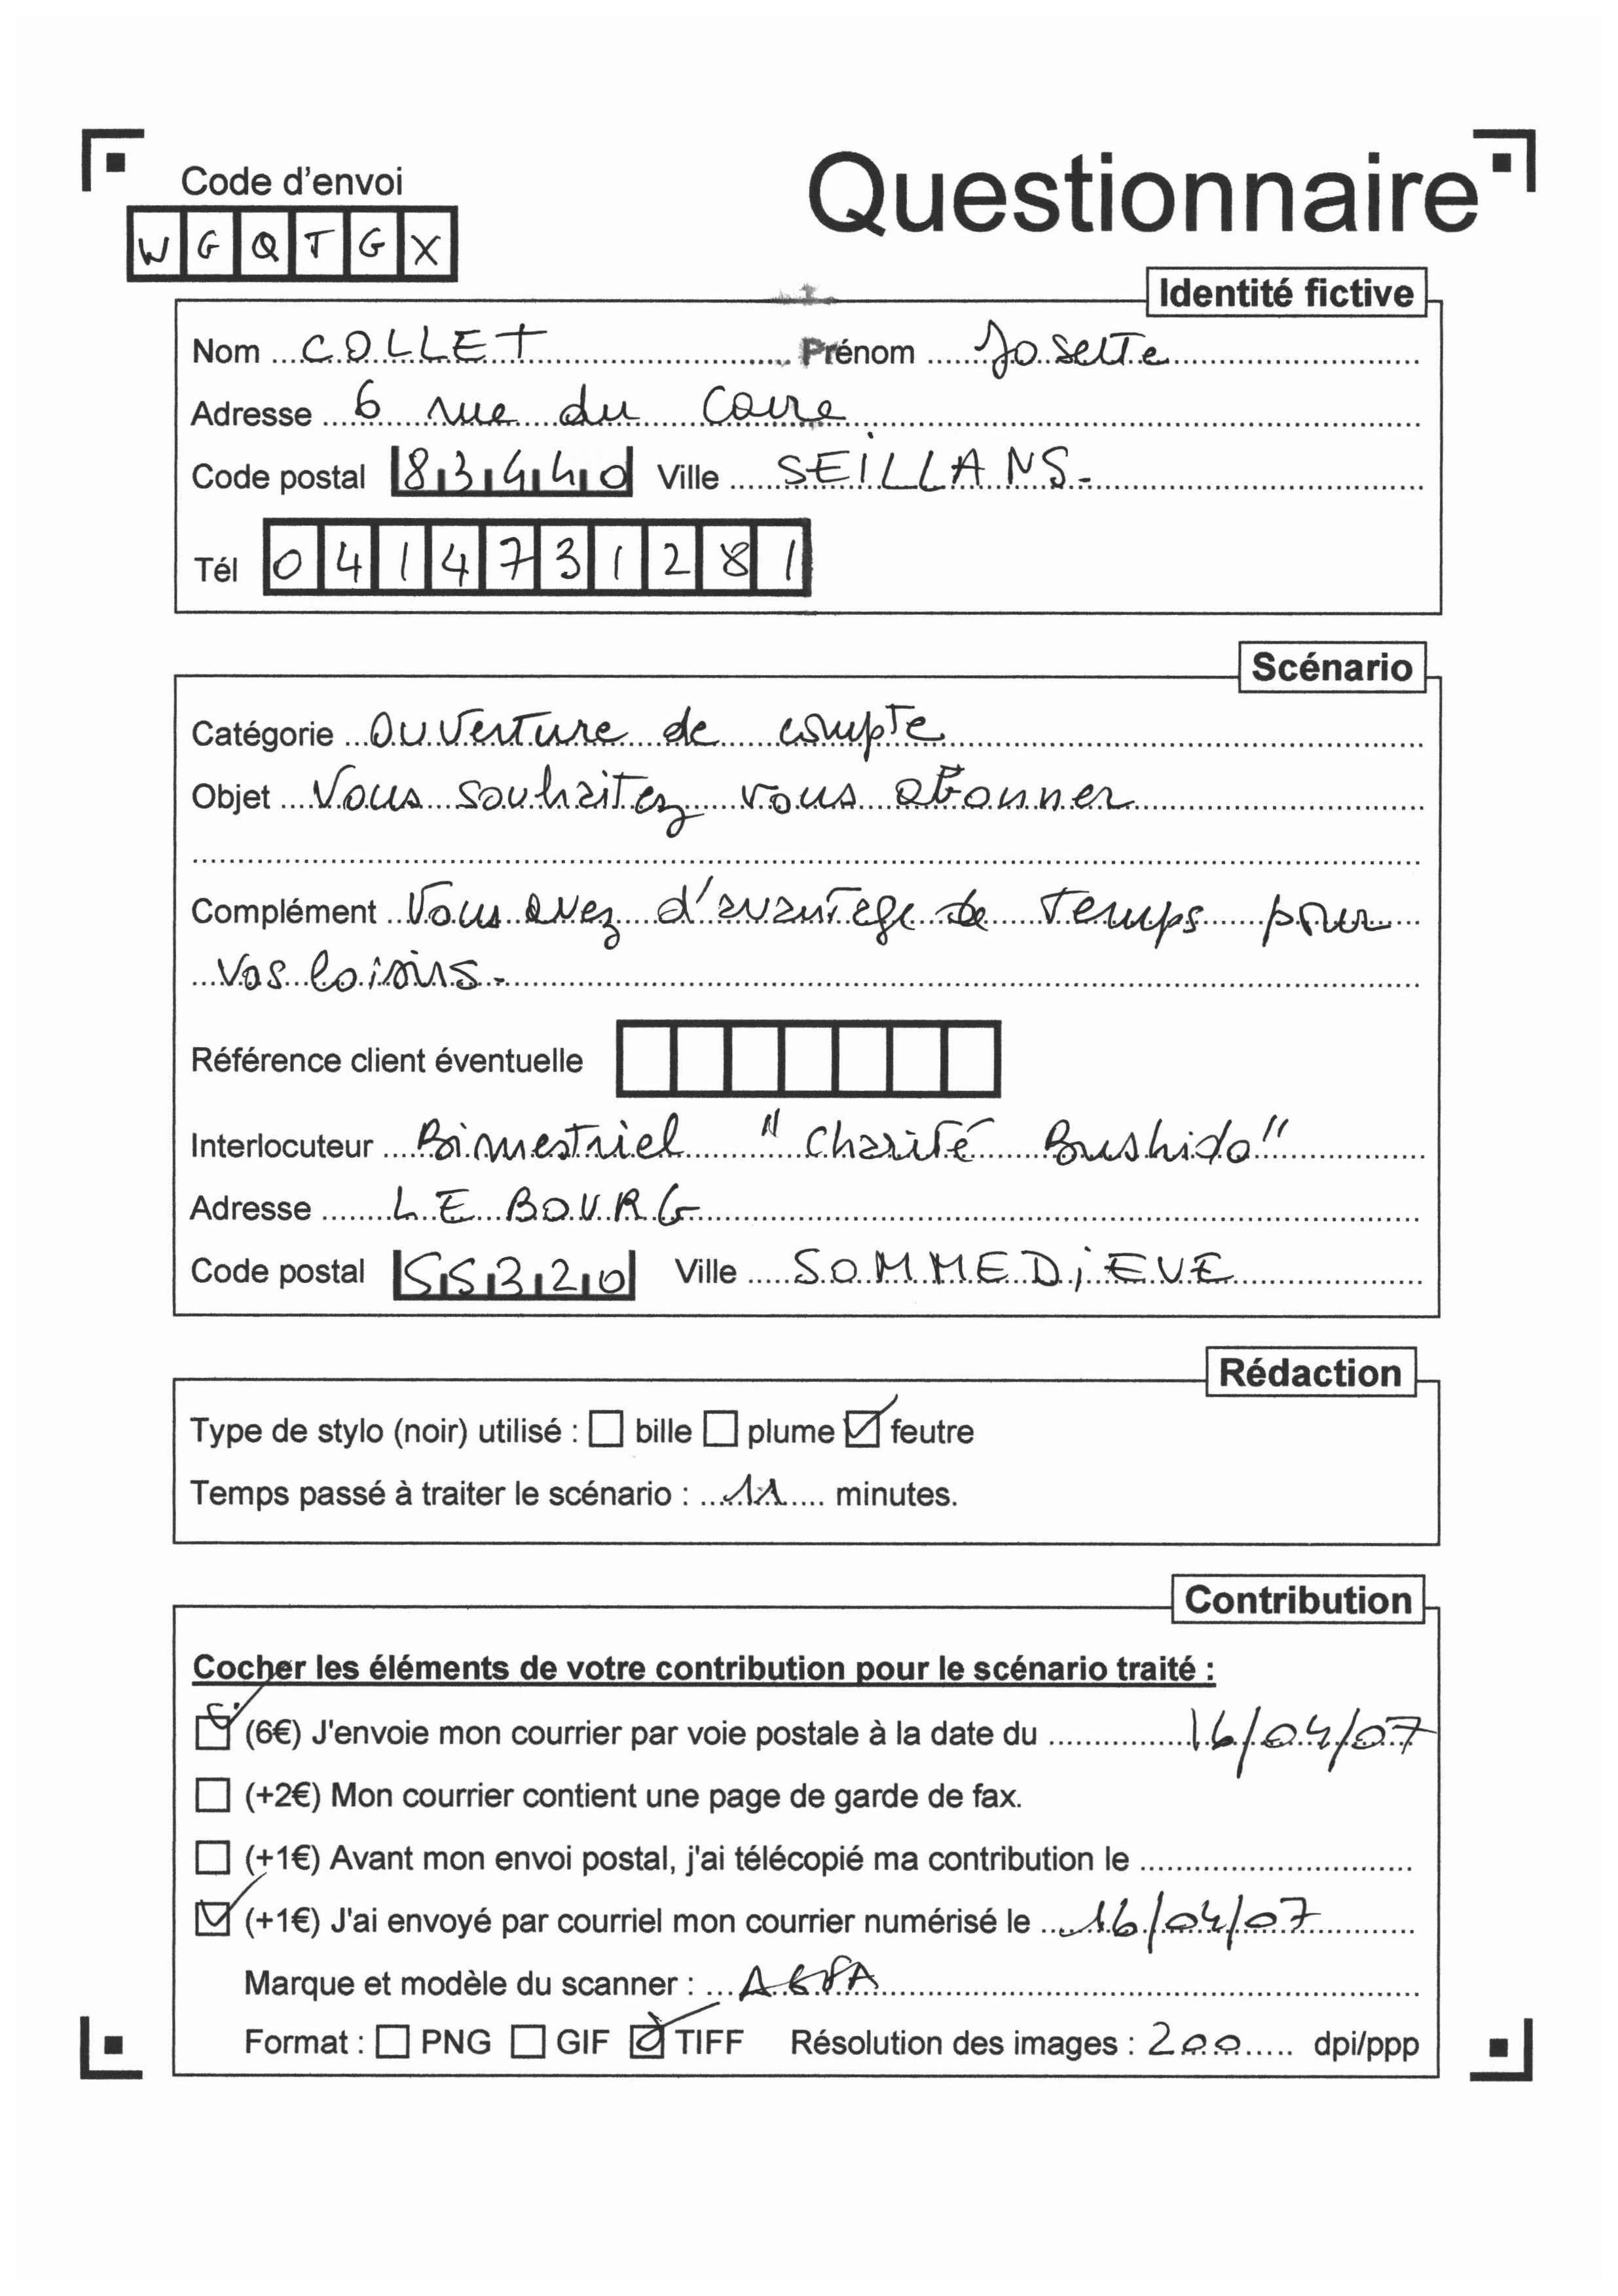 Code d'envoi
Questionnaire
W G Q T G X
Identité fictive
Nom COLLET Prénom Josette
Adresse 6 rue du Caire
Code postal 83440 Ville SEILLANS.
Tél 0414731281
Scénario
Catégorie Ouverture de compte
Objet Vous souhaitez vous abonner
Complément Vous avez d'avantage de temps pour
vos loisirs.
Référence client éventuelle
Interlocuteur Bimestriel "Charité Bushido"
Adresse LE BOURG
Code postal 55320 Ville SOMMEDIEUE
Rédaction
Type de stylo (noir) utilisé : bille plume feutre
Temps passé à traiter le scénario : 11 minutes.
Contribution
Cocher les éléments de votre contribution pour le scénario traité :
(6€) J'envoie mon courrier par voie postale à la date du 16/04/07
(+2€) Mon courrier contient une page de garde de fax.
(+1€) Avant mon envoi postal, j'ai télécopié ma contribution le
(+1€) J'ai envoyé par courriel mon courrier numérisé le 16/04/07
Marque et modèle du scanner : AGFA
Format : PNG GIF TIFF Résolution des images : 200 dpi/ppp